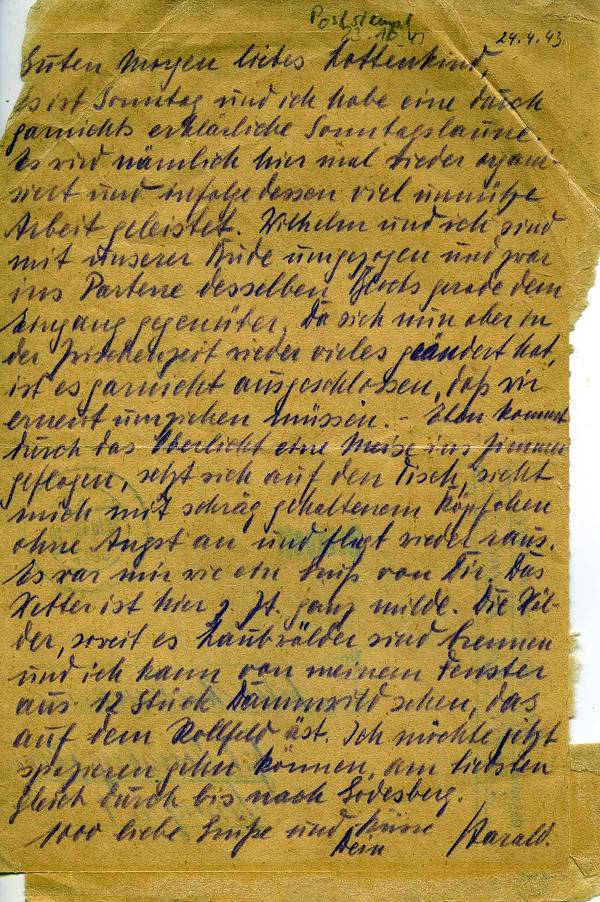 Poststempel
23.10.43
24.4.43
Guten Morgen liebes Lottenkind,
es ist Sonntag und ich habe eine durch
garnichts erklärliche Sonntagslaune.
Es wird nämlich hier mal wieder organi-
siert und infolgedessen viel unnütze
Arbeit geleistet. Wilhelm und ich sind
mit unserer Bude umgezogen und zwar
ins Parterre desselben Blocks gerade dem
Eingang gegenüber. Da sich nun aber in
der Zwischenzeit wieder vieles geändert hat,
ist es garnicht ausgeschlossen, daß wir
erneut umziehen müssen. - Eben kommt
durch das Oberlicht eine Meise ins Zimmer
geflogen, setzt sich auf den Tisch, sieht
mich mit schräg gehaltenem Köpfchen
ohne Angst an und fliegt wieder raus.
Es war mir wie ein Gruß von Dir. Das
Wetter ist hier z. Zt. ganz milde. Die Wäl-
der, soweit es Laubwälder sind brennen
und ich kann von meinem Fenster
aus 12 Stück Dammwild sehen, das
auf dem Rollfeld äst. Ich möchte jetzt
spazieren gehn können, am liebsten
gleich durch bis nach Godesberg.
1000 liebe Grüße und Küsse
Dein Harald.